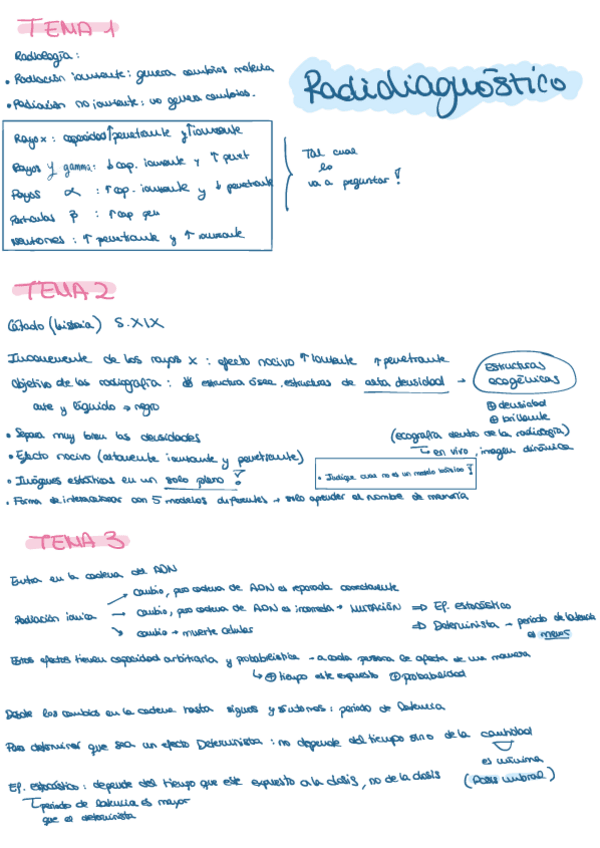 TEMA 1
Radidiagnóstico
Radiología:
• Radiación ionizante: genera cambios molecula
• Radiación no ionizante: no genera cambios.
Rayo x: capacidad ↑ penetrante y ↑ ionizante
Rayos γ gamma: ↓ cap. ionizante y ↑ penet
Rayos α : ↑ cap. ionizante y ↓ penetrante
Partículas β : ↑ cap pen
Neutrones : ↑ penetrante y ↑ ionizante
Tal cual
lo
va a peguntar!
TEMA 2
Cátado (historia) S.XIX
Inconveniente de los rayos x : efecto nocivo ↑ ionizante ↑ penetrante
Objetivo de las radiografía : estructura ósea, estructuras de alta densidad →
Estructuras
ecogénicas
aire y líquido → negro
⊕ densidad
⊕ brillante
• Separa muy bien las densidades
(ecografía dentro de la radiología)
↳ en vivo, imagen dinámica
• Efecto nocivo (altamente ionizante y penetrante)
• Imágenes estáticas en un solo plano!
• Indique cual no es un modelo básico!
• Forma de interaccionar con 5 modelos diferentes → solo aprender el nombre de memoria
TEMA 3
Entra en la cadena del ADN
Radiación iónica
→ cambio, pero cadena de ADN es reparada correctamente
→ cambio, pero cadena de ADN es incorrecta → MUTACIÓN ⇒ Ef. estocástico
⇒ Determinista → periodo de latencia
es menos
→ cambio → muerte celular
Estos efectos tienen capacidad arbitraria y probabilística → a cada persona le afecta de una manera
↳ ⊕ tiempo esté expuesto ⊕ probabilidad
Desde los cambios en la cadena hasta signos y síntomas : periodo de latencia
Para determinar que sea un efecto Determinista : no depende del tiempo sino de la cantidad
es mínima
(Dosis umbral)
Ef. estocástico : depende del tiempo que este expuesto a la dosis, no de la dosis
↳ periodo de latencia es mayor
que el determinista